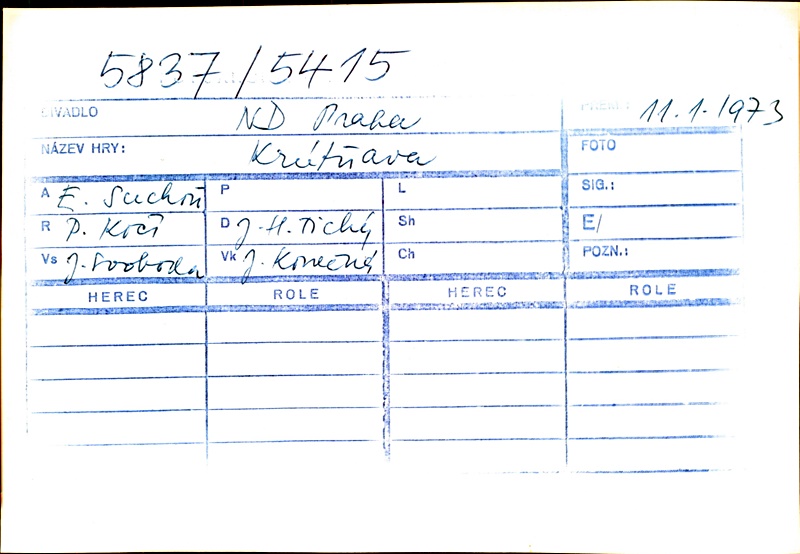 5837/5415
DIVADLO ND Praha PREM.: 11.1.1973
NÁZEV HRY: Krútňava FOTO
A E. Suchoň P L SIG.:
R P. Kočí D J.H. Tichý Sh E/
Vs J. Svoboda Vk J. Konečný Ch POZN.:
HEREC ROLE HEREC ROLE